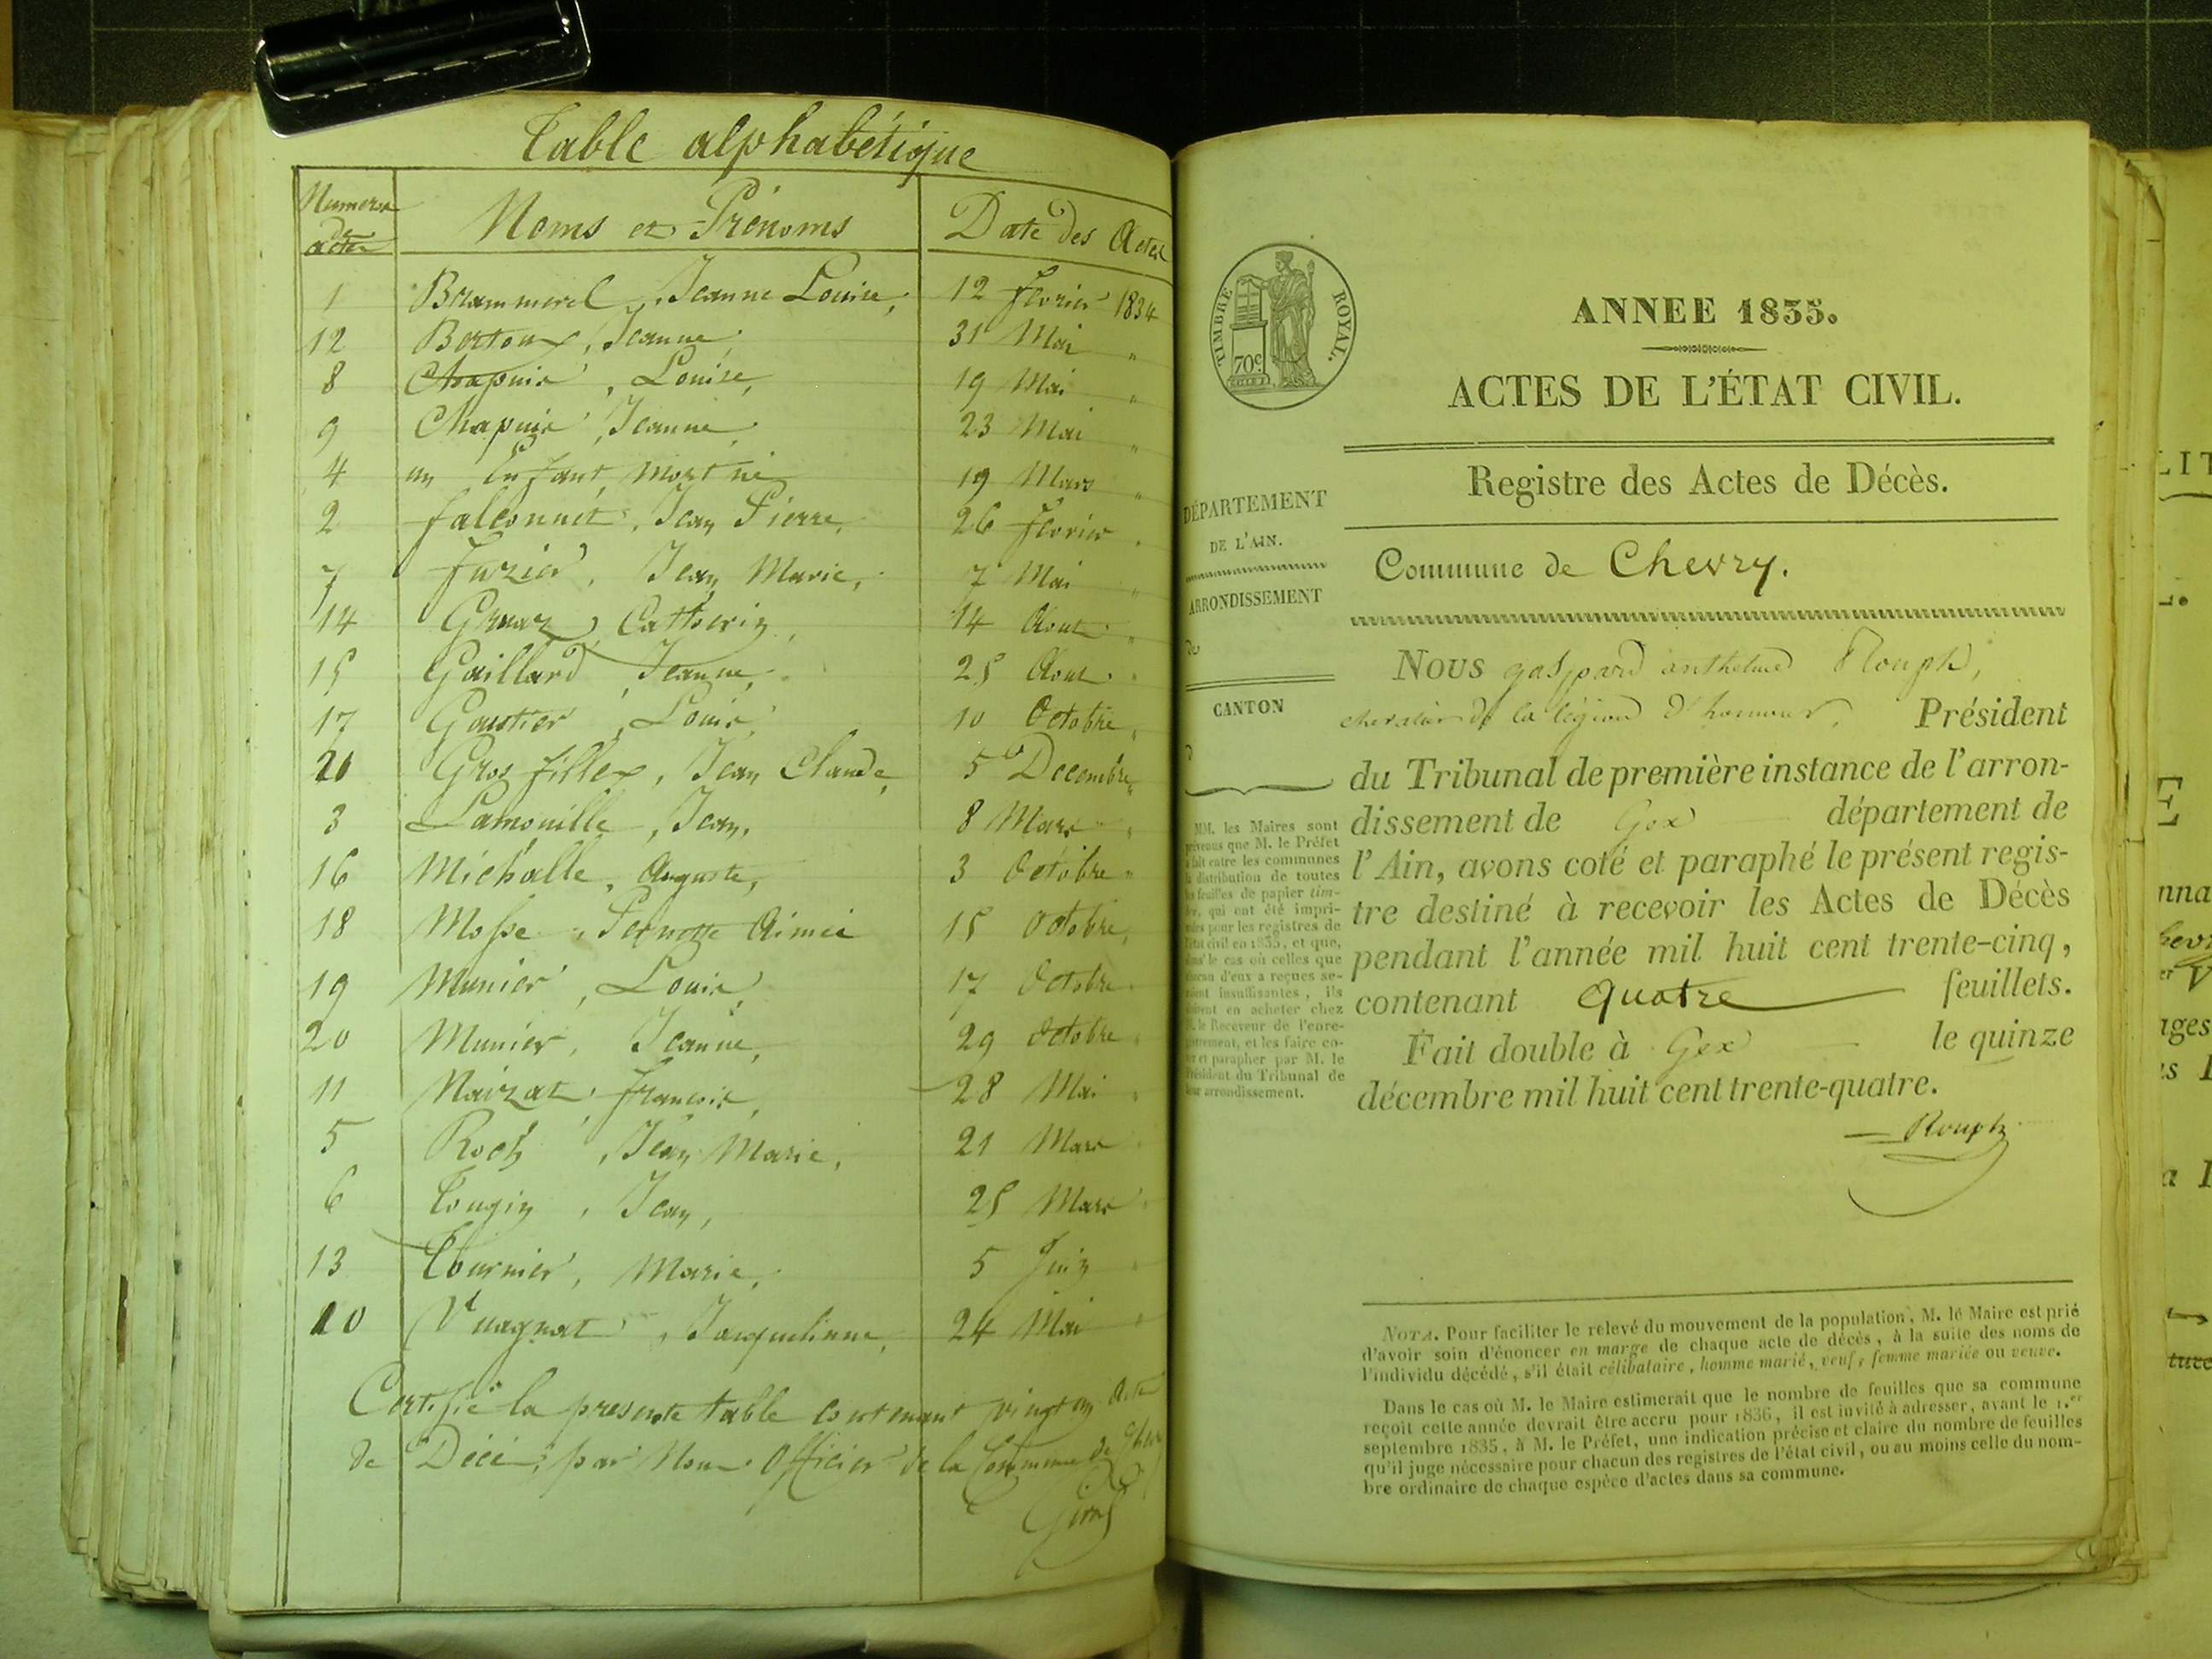 Table alphabétique
Numeros de actes Noms et Prénoms Date des Actes
1 Brammerel, Jeanne Louise, 12 fevrier 1834
12 Bertoux, Jeanne, 31 Mai "
8 Chapuis, Louise, 19 Mai "
9 Chapuis, Jeanne, 23 Mai "
4 un Enfant mort né 19 Mars "
2 falconnet, Jean Pierre, 26 fevrier "
7 Juzier, Jean Marie, 7 Mai "
14 Gruaz, Catherin, 14 Aout "
15 Gaillard, Jeanne, 25 Aout "
17 Goutier, Louis, 10 Octobre "
21 Gros fillex, Jean Claude, 5 Decembre "
3 Lamouille, Jean, 8 Mars "
16 Michalle, Auguste, 3 Octobre "
18 Mosse, Pernotte Aimée 15 Octobre "
19 Munier, Louis, 17 Octobre "
20 Munier, Jeanne, 29 Octobre "
11 Naizat, francois, 28 Mai "
5 Roch, Jean Marie, 21 Mars
6 Tougin, Jean, 25 Mars "
13 Tournier, Marie, 5 Juin "
10 Vuagnat, Jacquelinne, 24 Mai "
Certifié la presente table contenant vingt un acte
de Décè, par Nous Officier de la Commune de
TIMBRE ROYAL.
70c
ANNEE 1835.
ACTES DE L'ÉTAT CIVIL.
Registre des Actes de Décès.
DÉPARTEMENT
DE L'AIN.
ARRONDISSEMENT
de
CANTON
d
MM. les Maires sont
prévenus que M. le Préfet
a fait entre les communes
la distribution de toutes
les feuilles de papier tim-
bré, qui ont été impri-
mées pour les registres de
l'état civil en 1835, et que,
dans le cas où celles que
chacun d'eux a reçues se-
raient insuffisantes, ils
doivent en acheter chez
M. le Receveur de l'enre-
gistrement, et les faire co-
ter et parapher par M. le
Président du Tribunal de
leur arrondissement.
Commune de Chevry.
Nous gaspard anthelme Rouph,
chevalier de la légion d'honneur, Président
du Tribunal de première instance de l'arron-
dissement de Gex département de
l'Ain, avons coté et paraphé le présent regis-
tre destiné à recevoir les Actes de Décès
pendant l'année mil huit cent trente-cinq,
contenant quatre feuillets.
Fait double à Gex le quinze
décembre mil huit cent trente-quatre.
Rouph
NOTA. Pour faciliter le relevé du mouvement de la population, M. le Maire est prié
d'avoir soin d'énoncer en marge de chaque acte de décès, à la suite des noms de
l'individu décédé, s'il était célibataire, homme marié, veuf, femme mariée ou veuve.
Dans le cas où M. le Maire estimerait que le nombre de feuilles que sa commune
reçoit cette année devrait être accru pour 1836, il est invité à adresser, avant le 1.er
septembre 1835, à M. le Préfet, une indication précise et claire du nombre de feuilles
qu'il juge nécessaire pour chacun des registres de l'état civil, ou au moins celle du nom-
bre ordinaire de chaque espèce d'actes dans sa commune.